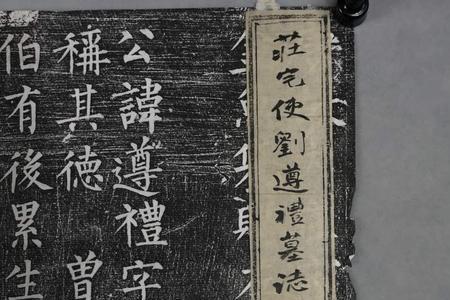 莊宅使劉遵禮墓誌
公諱遵禮字
稱其德 曾
伯有後累生